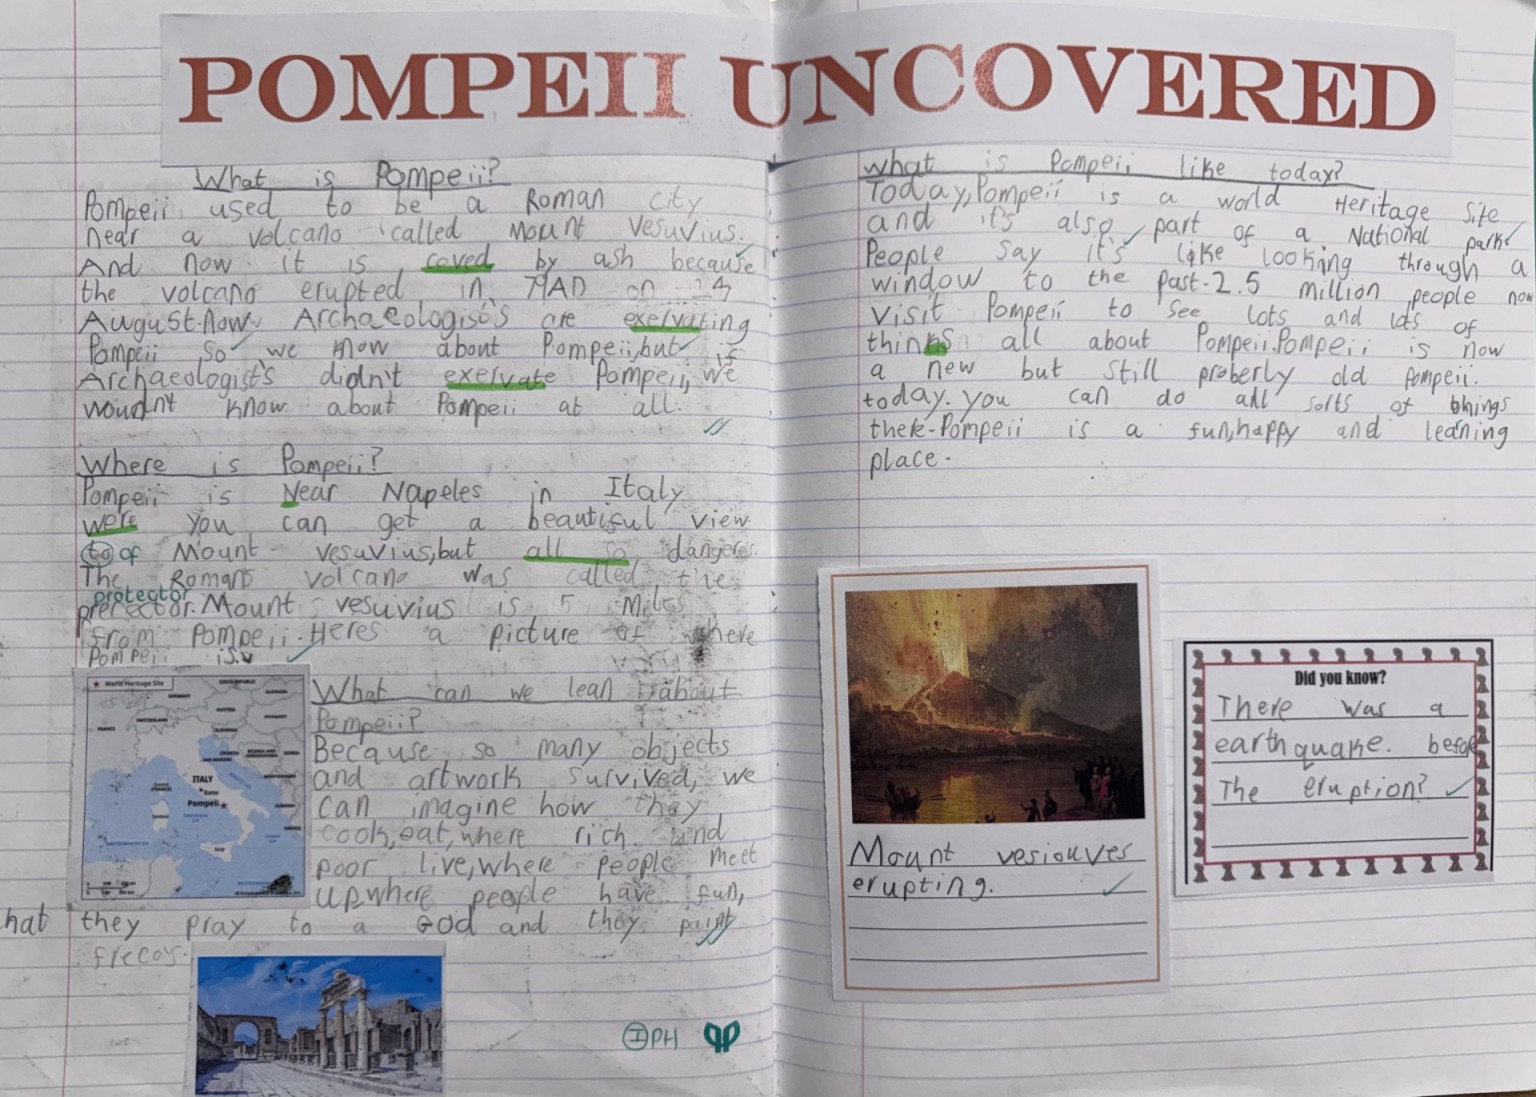 POMPEII UNCOVERED
What is Pompeii?
Pompeii used to be a Roman city
near a volcano called Mount Vesuvius.
And now it is coved by ash because
the volcano erupted in 79AD on 24
August.Now Archaeologist's are exervating
Pompeii so we know about Pompeii,but if
Archaeologist's didn't exervate Pompeii, we
woudn't know about Pompeii at all.
Where is Pompeii?
Pompeii is Near Napeles in Italy
were you can get a beautiful view
to of Mount vesuvius,but all so dangeres.
The Romans volcano was called the
protector
prerector.Mount vesuvius is 5 Miles
from Pompeii.Heres a picture of where
Pompeii is.
★ World Heritage Site
FRANCE
GERMANY
AUSTRIA
ITALY
Rome
Pompeii ★
Sicily
What can we lean about
Pompeii?
Because so many objects
and artwork survived, we
can imagine how they
cook,eat,where rich and
poor live,where people meet
up,where people have fun,
hat they pray to a God and they paint
frecos.
IPH
what is Pompeii like today?
Today,Pompeii is a world Heritage Site
and it's also part of a National park.
People say it's like looking through a
window to the past.2.5 million people now
visit Pompeii to see lots and lots of
thinks all about Pompeii.Pompeii is now
a new but still proberly old Pompeii.
today.you can do all sorts of things
there.Pompeii is a fun,happy and leaning
place.
Mount vesiouves
erupting.
Did you know?
There was a
earthquake. before
The eruption?